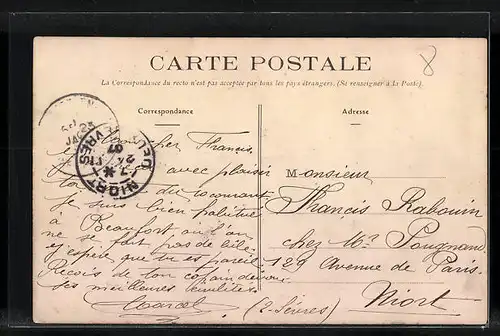 CARTE POSTALE
La Correspondance du recto n'est pas acceptée par tous les pays étrangers. (Se renseigner à la Poste).
8
Correspondance
Adresse
cher Francis
avec plaisir
du courant
je suis bien habitué
à Beaufort où l'on
ne se fait pas de bile
et j'espère que tu es pareil
Reçois de ton copain
ses meilleures
Marcel
Monsieur
Francis Rabouin
chez Mr Pougnand
129 Avenue de Paris
Niort
(2-Sèvres)
NIORT
DEUX-SEVRES
24
07